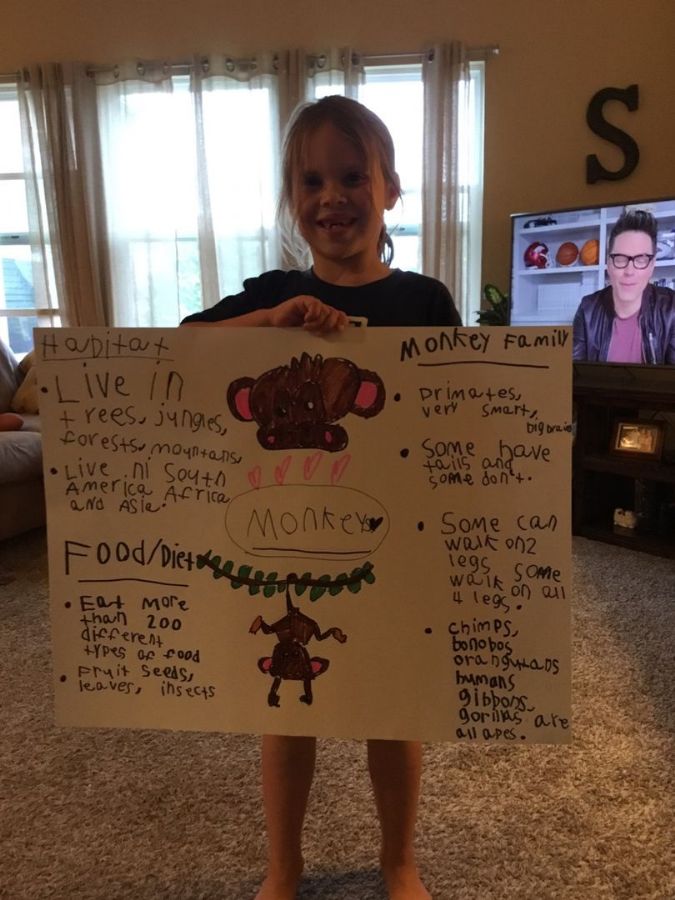 Habitat
• Live in
trees, jungles,
forests, mountans,
• Live ni South
America, Africa
and Asia.
Food/Diet
• Eat more
than 200
different
types of food
• Fruit seeds,
leaves, insects
Monkeys
Monkey Family
• Primates,
very smart,
big brain
• Some have
tails and
some don't.
• Some can
walk on 2
legs some
walk on all
4 legs.
• chimps,
bonobos
orangutans
humans
gibbons,
gorillas are
all apes.
S